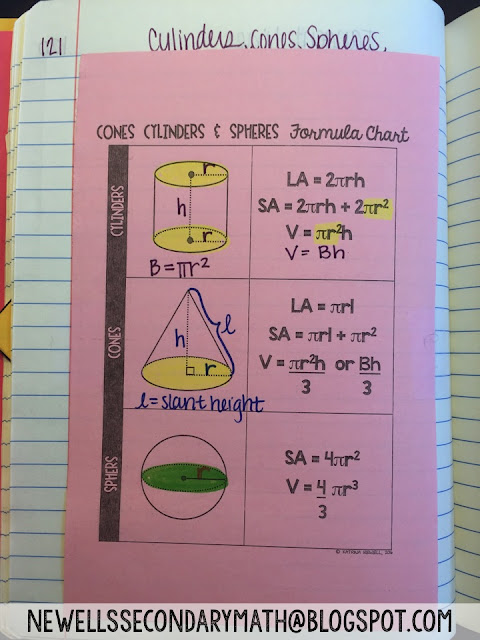 121 Cylinders, Cones, Spheres,
CONES CYLINDERS & SPHERES Formula Chart
CYLINDERS
r
h
r
B = πr²
LA = 2πrh
SA = 2πrh + 2πr²
V = πr²h
V = Bh
CONES
h
l
r
l = slant height
LA = πrl
SA = πrl + πr²
V = πr²h or Bh
3 3
SPHERS
r
SA = 4πr²
V = 4 πr³
3
© KATRINA NEWELL, 2016
NEWELLSSECONDARYMATH@BLOGSPOT.COM